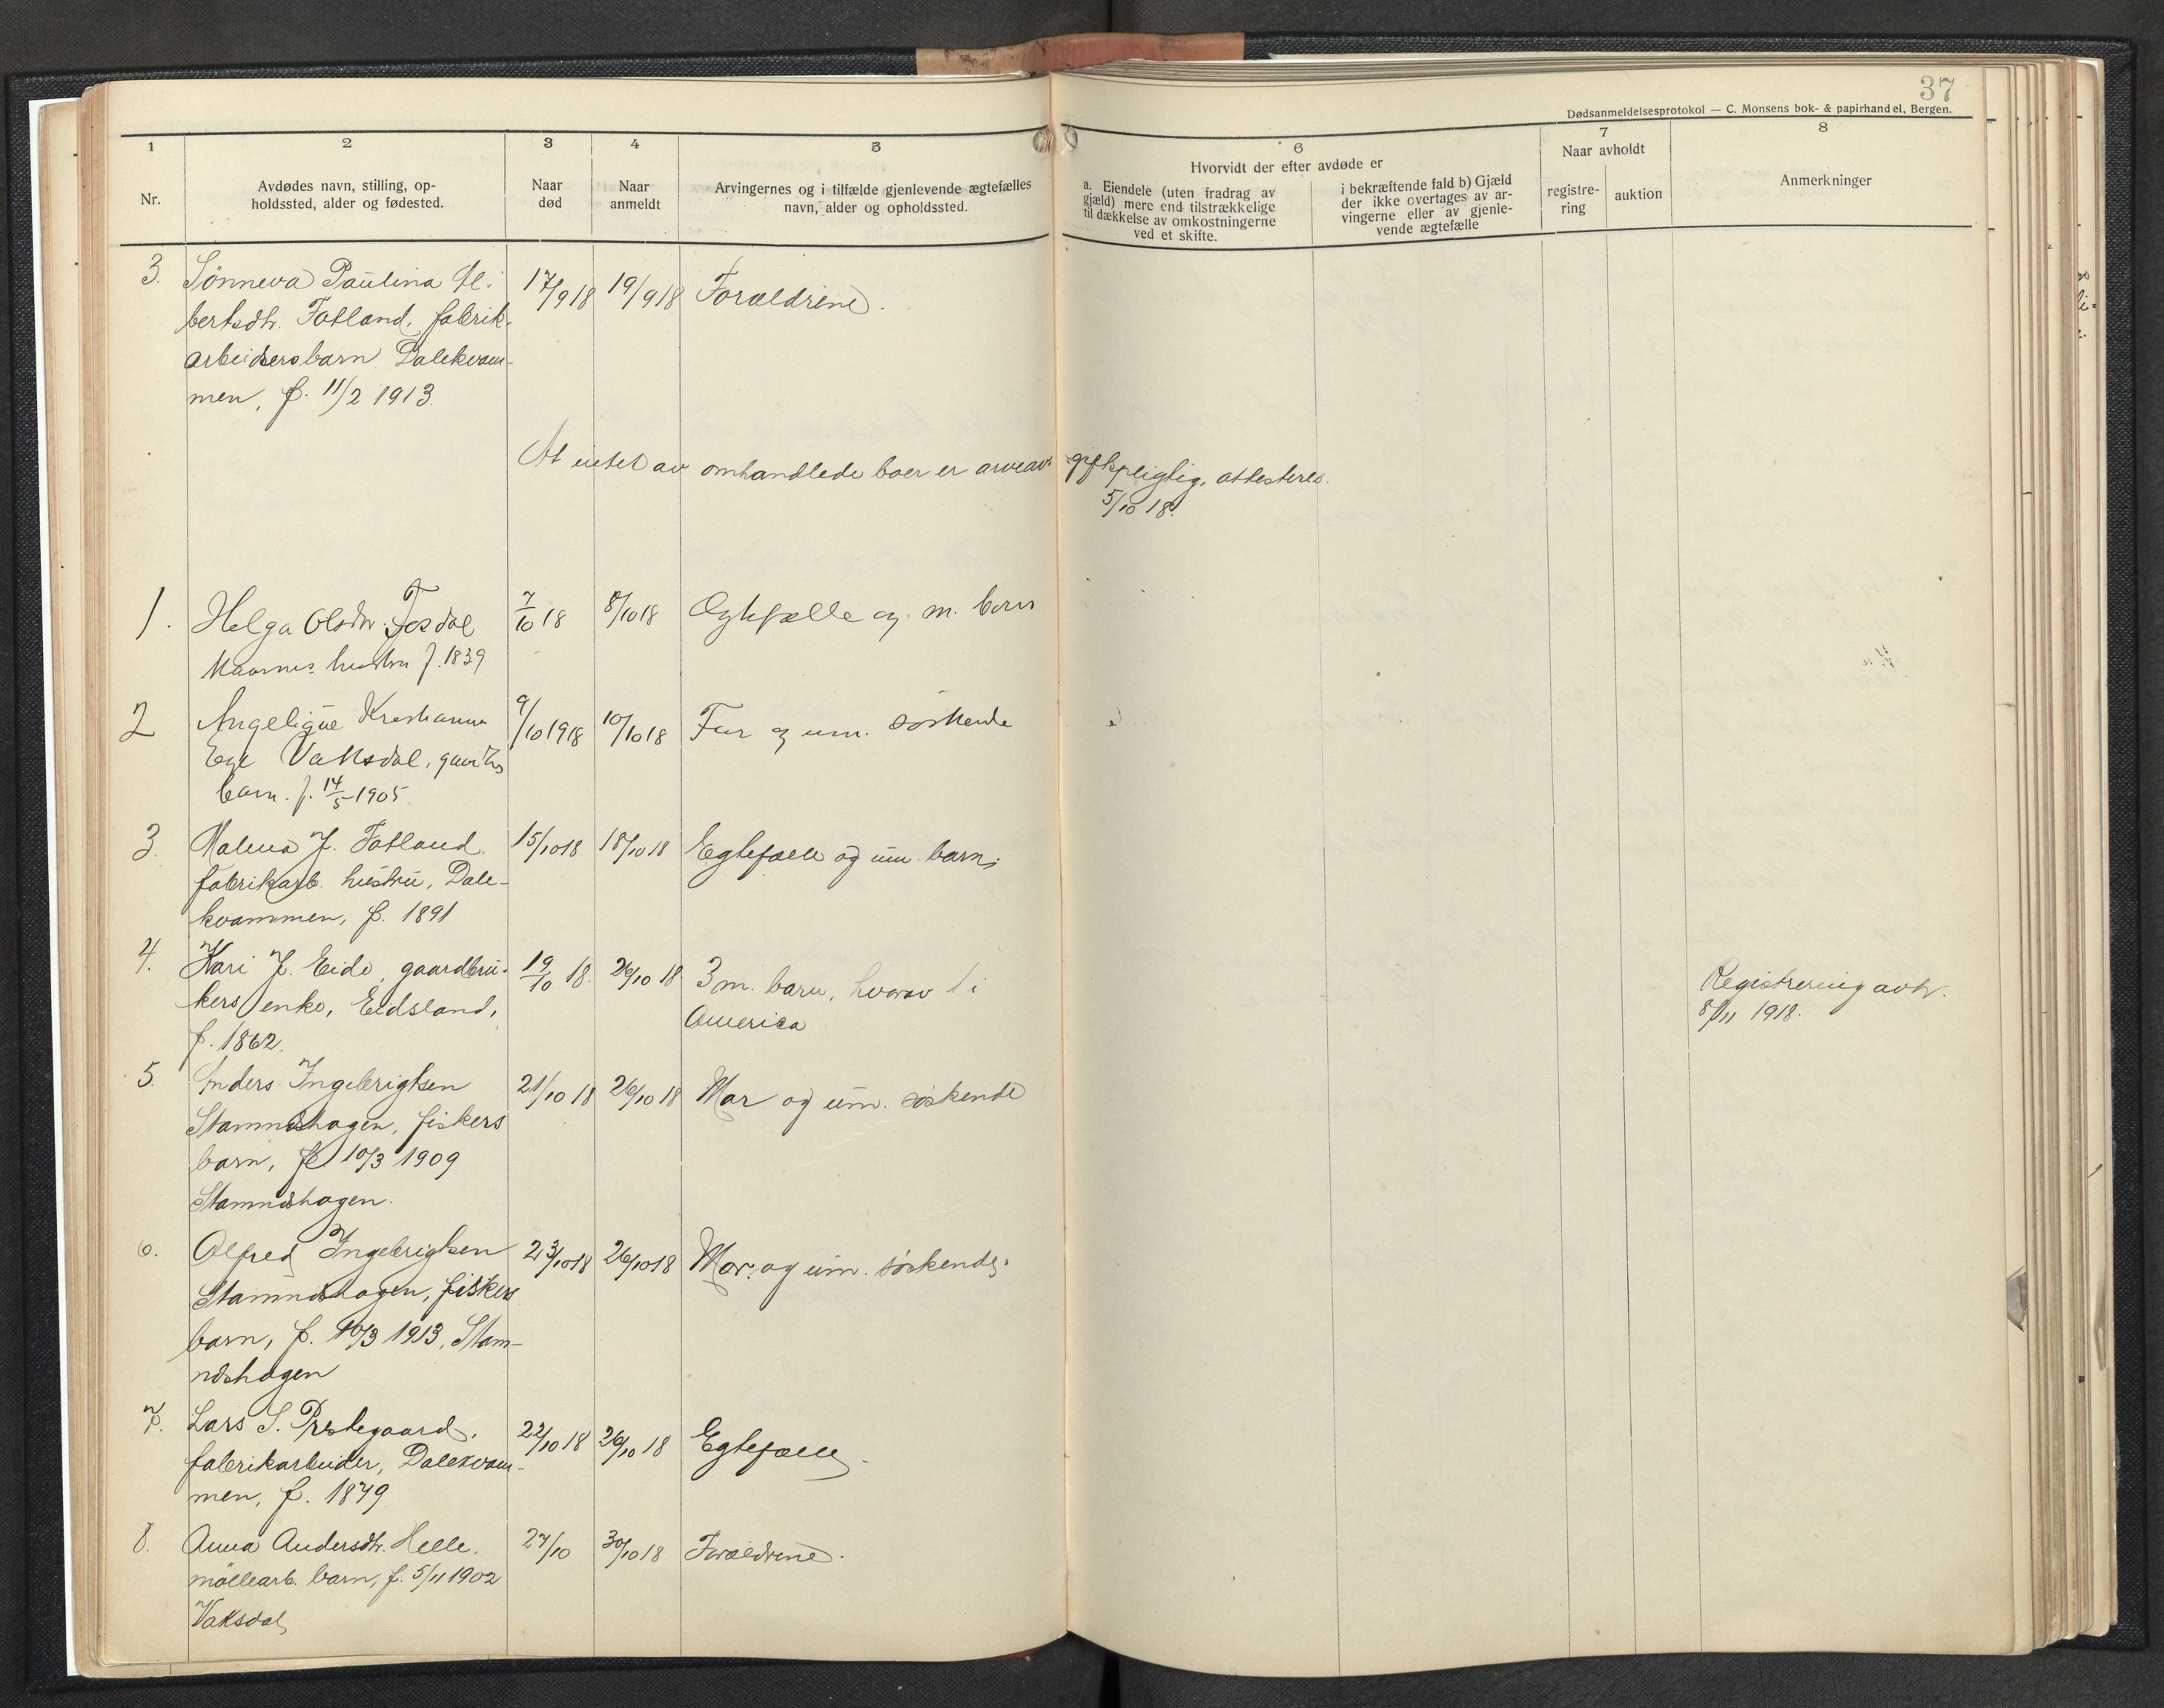 37
Dødsanmeldelsesprotokol — C. Monsens bok- & papirhandel, Bergen.
1 2 3 4 5 6 7 8
Nr.
Avdødes navn, stilling, op-
holdssted, alder og fødested.
Naar
død
Naar
anmeldt
Arvingernes og i tilfælde gjenlevende ægtefælles
navn, alder og opholdssted.
Hvorvidt der efter avdøde er
a. Eiendele (uten fradrag av
gjæld) mere end tilstrækkelige
til dækkelse av omkostningerne
ved et skifte.
i bekræftende fald b) Gjæld
der ikke overtages av ar-
vingerne eller av gjenle-
vende ægtefælle
Naar avholdt
registre-
ring
auktion
Anmerkninger
3. Sønneva Paulina Al- 17/9 18 19/9 18 Forældrene.
bertsdtr. Fotland, fabrik-
arbeidersbarn Dalekvam-
men, f. 11/2 1913.
At intet av omhandlede boer er arveav-giftspligtig, attesteres.
5/10 18.
1. Helga Olsdtr. Fosdal 7/10 18 8/10 18 Egtefælle og m. born
hustru f. 1839
2 Angelique 9/10 1918 10/10 18 Far og um. søskende
Vaksdal,
barn. f. 14/5 1905
3. Malena J. Fotland 15/10 18 18/10 18 Egtefælle og um. barn.
fabrikarb. hustru, Dale-
kvammen, f. 1891
4. Kari J. Eide, gaardbru- 19/10 18. 26/10 18 3 m. barn, hvorav 1 i
kers enke, Eidsland, America
f. 1862.
Registrering avh.
8/11 1918.
5. Anders Ingebrigtsen 21/10 18 26/10 18 Mor og um. søskende
Stamnshagen, fiskers
barn, f. 10/3 1909
Stamnshagen.
6. Alfred Ingebrigtsen 23/10 18 26/10 18 Mor og um. søskende.
Stamnshagen, fiskers
barn, f. 10/3 1913, Stam-
nshagen
7. Lars S. Prestegaard, 22/10 18 26/10 18 Egtefælle
fabrikarbeider, Dalekvam-
men, f. 1879
8. Anna Andersdtr. Helle. 27/10 30/10 18 Forældrene.
möllearb. barn, f. 5/11 1902
Vaksdal